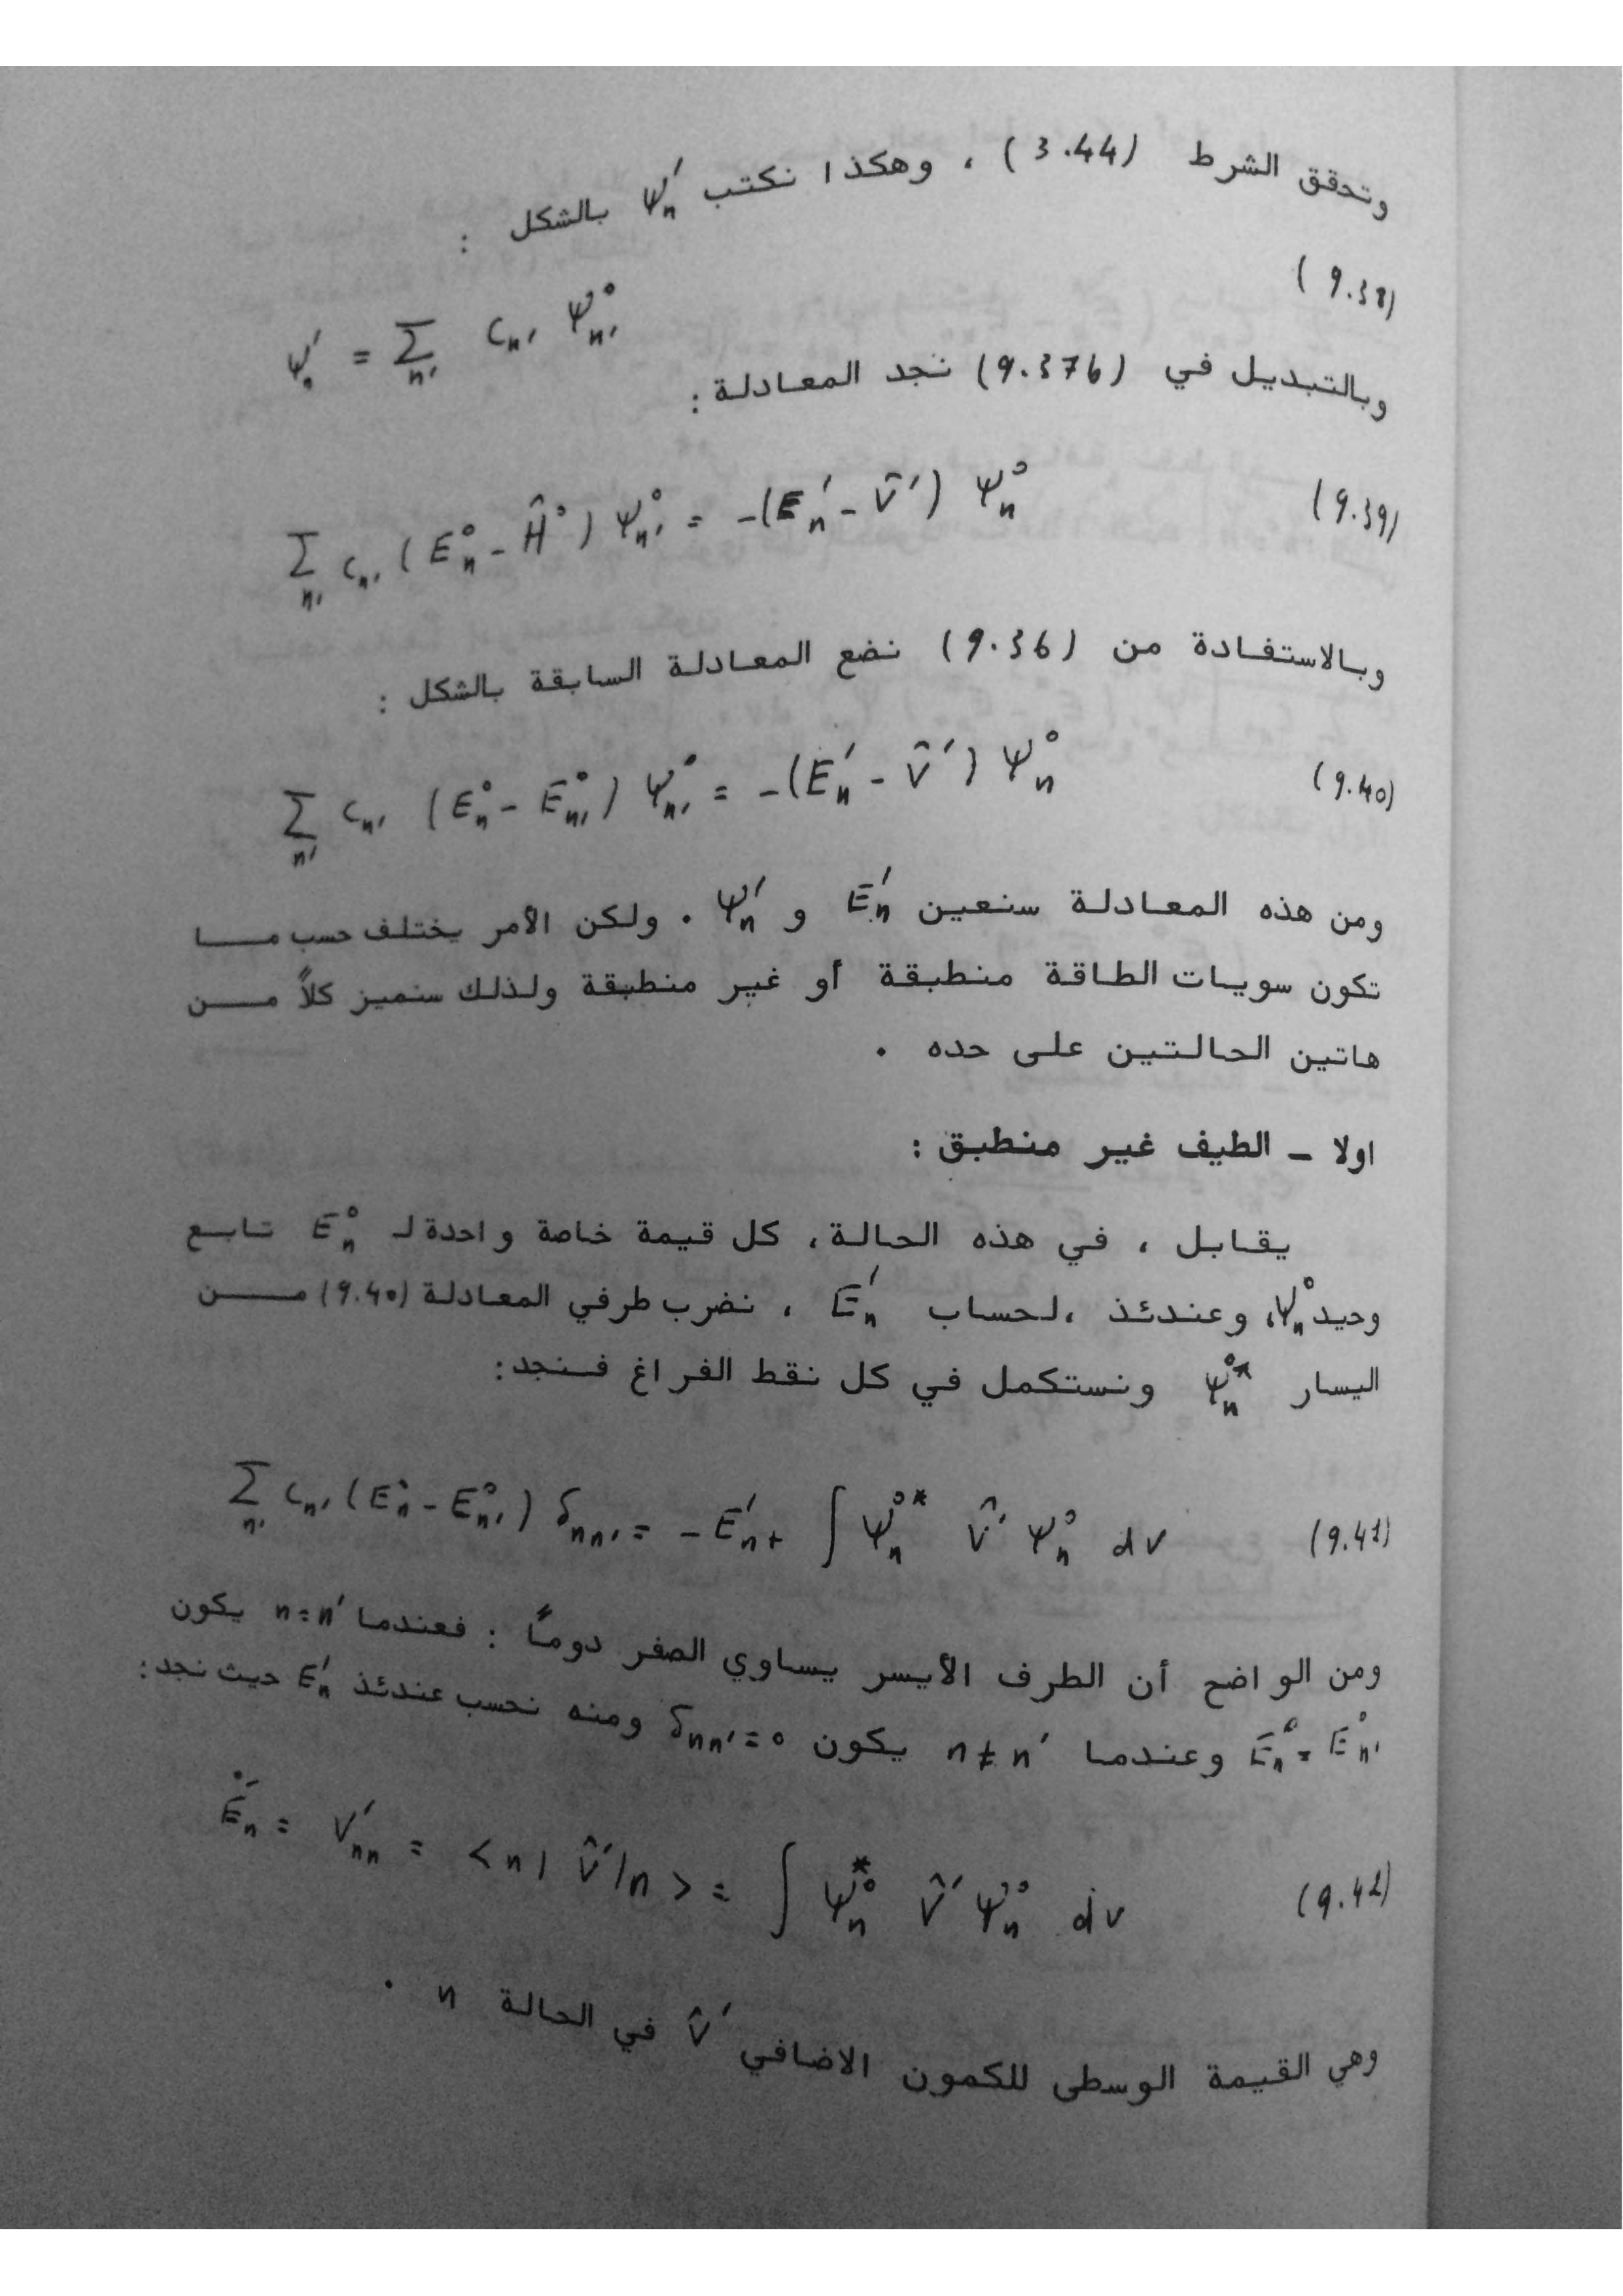 وتحقق الشرط (3.44) ، وهكذا نكتب ψ′ₙ بالشكل :
(9.38)
ψ′ₙ = Σₙ′ Cₙ′ ψ°ₙ′
وبالتبديل في (9.37b) نجد المعادلة :
Σₙ′ Cₙ′ (E°ₙ - Ĥ°) ψ°ₙ′ = -(E′ₙ - V̂′) ψ°ₙ (9.39)
وبالاستفادة من (9.36) نضع المعادلة السابقة بالشكل :
Σₙ′ Cₙ′ (E°ₙ - E°ₙ′) ψ°ₙ′ = -(E′ₙ - V̂′) ψ°ₙ (9.40)
ومن هذه المعادلة سنعين E′ₙ و ψ′ₙ . ولكن الأمر يختلف حسب مـــا
تكون سويات الطاقة منطبقة أو غير منطبقة ولذلك سنميز كلاً مــن
هاتين الحالتين على حده .
اولا ـ الطيف غير منطبق :
يقابل ، في هذه الحالة، كل قيمة خاصة واحدة لـ E°ₙ تابع
وحيد ψ°ₙ، وعندئذ ،لحساب E′ₙ ، نضرب طرفي المعادلة (9.40) مــن
اليسار ψ°*ₙ ونستكمل في كل نقط الفراغ فـنجد:
Σₙ′ Cₙ′ (E°ₙ - E°ₙ′) δₙₙ′ = - E′ₙ + ∫ ψ°*ₙ V̂′ ψ°ₙ dv (9.41)
ومن الواضح أن الطرف الأيسر يساوي الصفر دوماً : فعندما n=n′ يكون
E°ₙ = E°ₙ′ وعندما n≠n′ يكون δₙₙ′=0 ومنه نحسب عندئذ E′ₙ حيث نجد:
E′ₙ = V′ₙₙ = <n| V̂′|n> = ∫ ψ*°ₙ V̂′ ψ°ₙ dv (9.42)
وهي القيمة الوسطى للكمون الاضافي V̂′ في الحالة n .